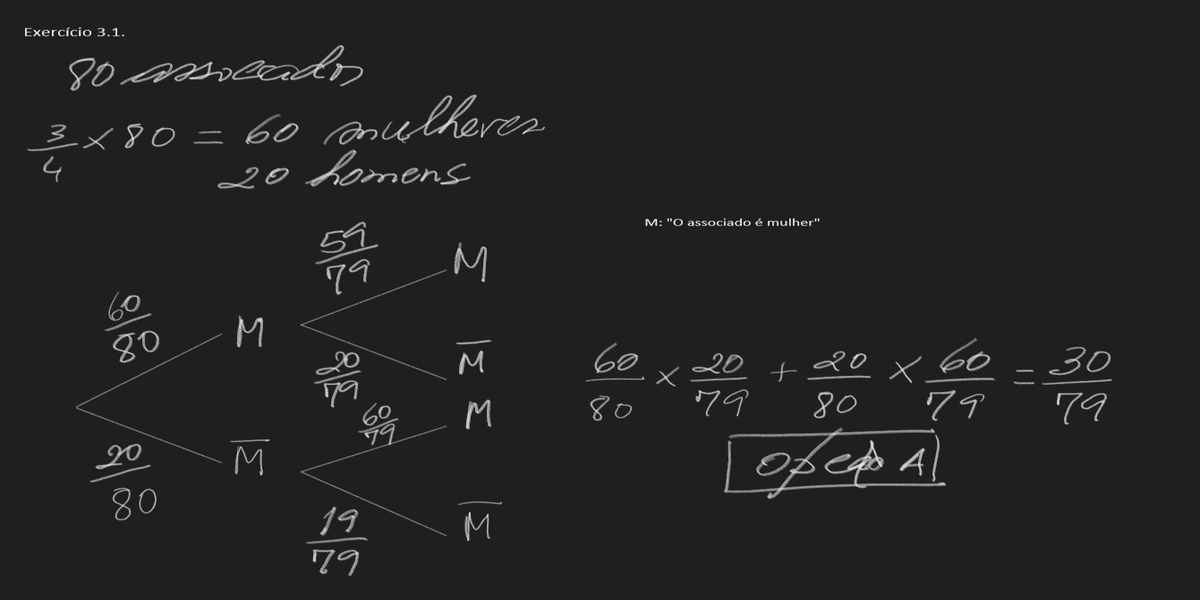 Exercício 3.1.
80 associados
3/4 × 80 = 60 mulheres
20 homens
M: "O associado é mulher"
59/79 M
60/80 M
20/79 M̅
60/79 M
20/80 M̅
19/79 M̅
60/80 × 20/79 + 20/80 × 60/79 = 30/79
Opção A